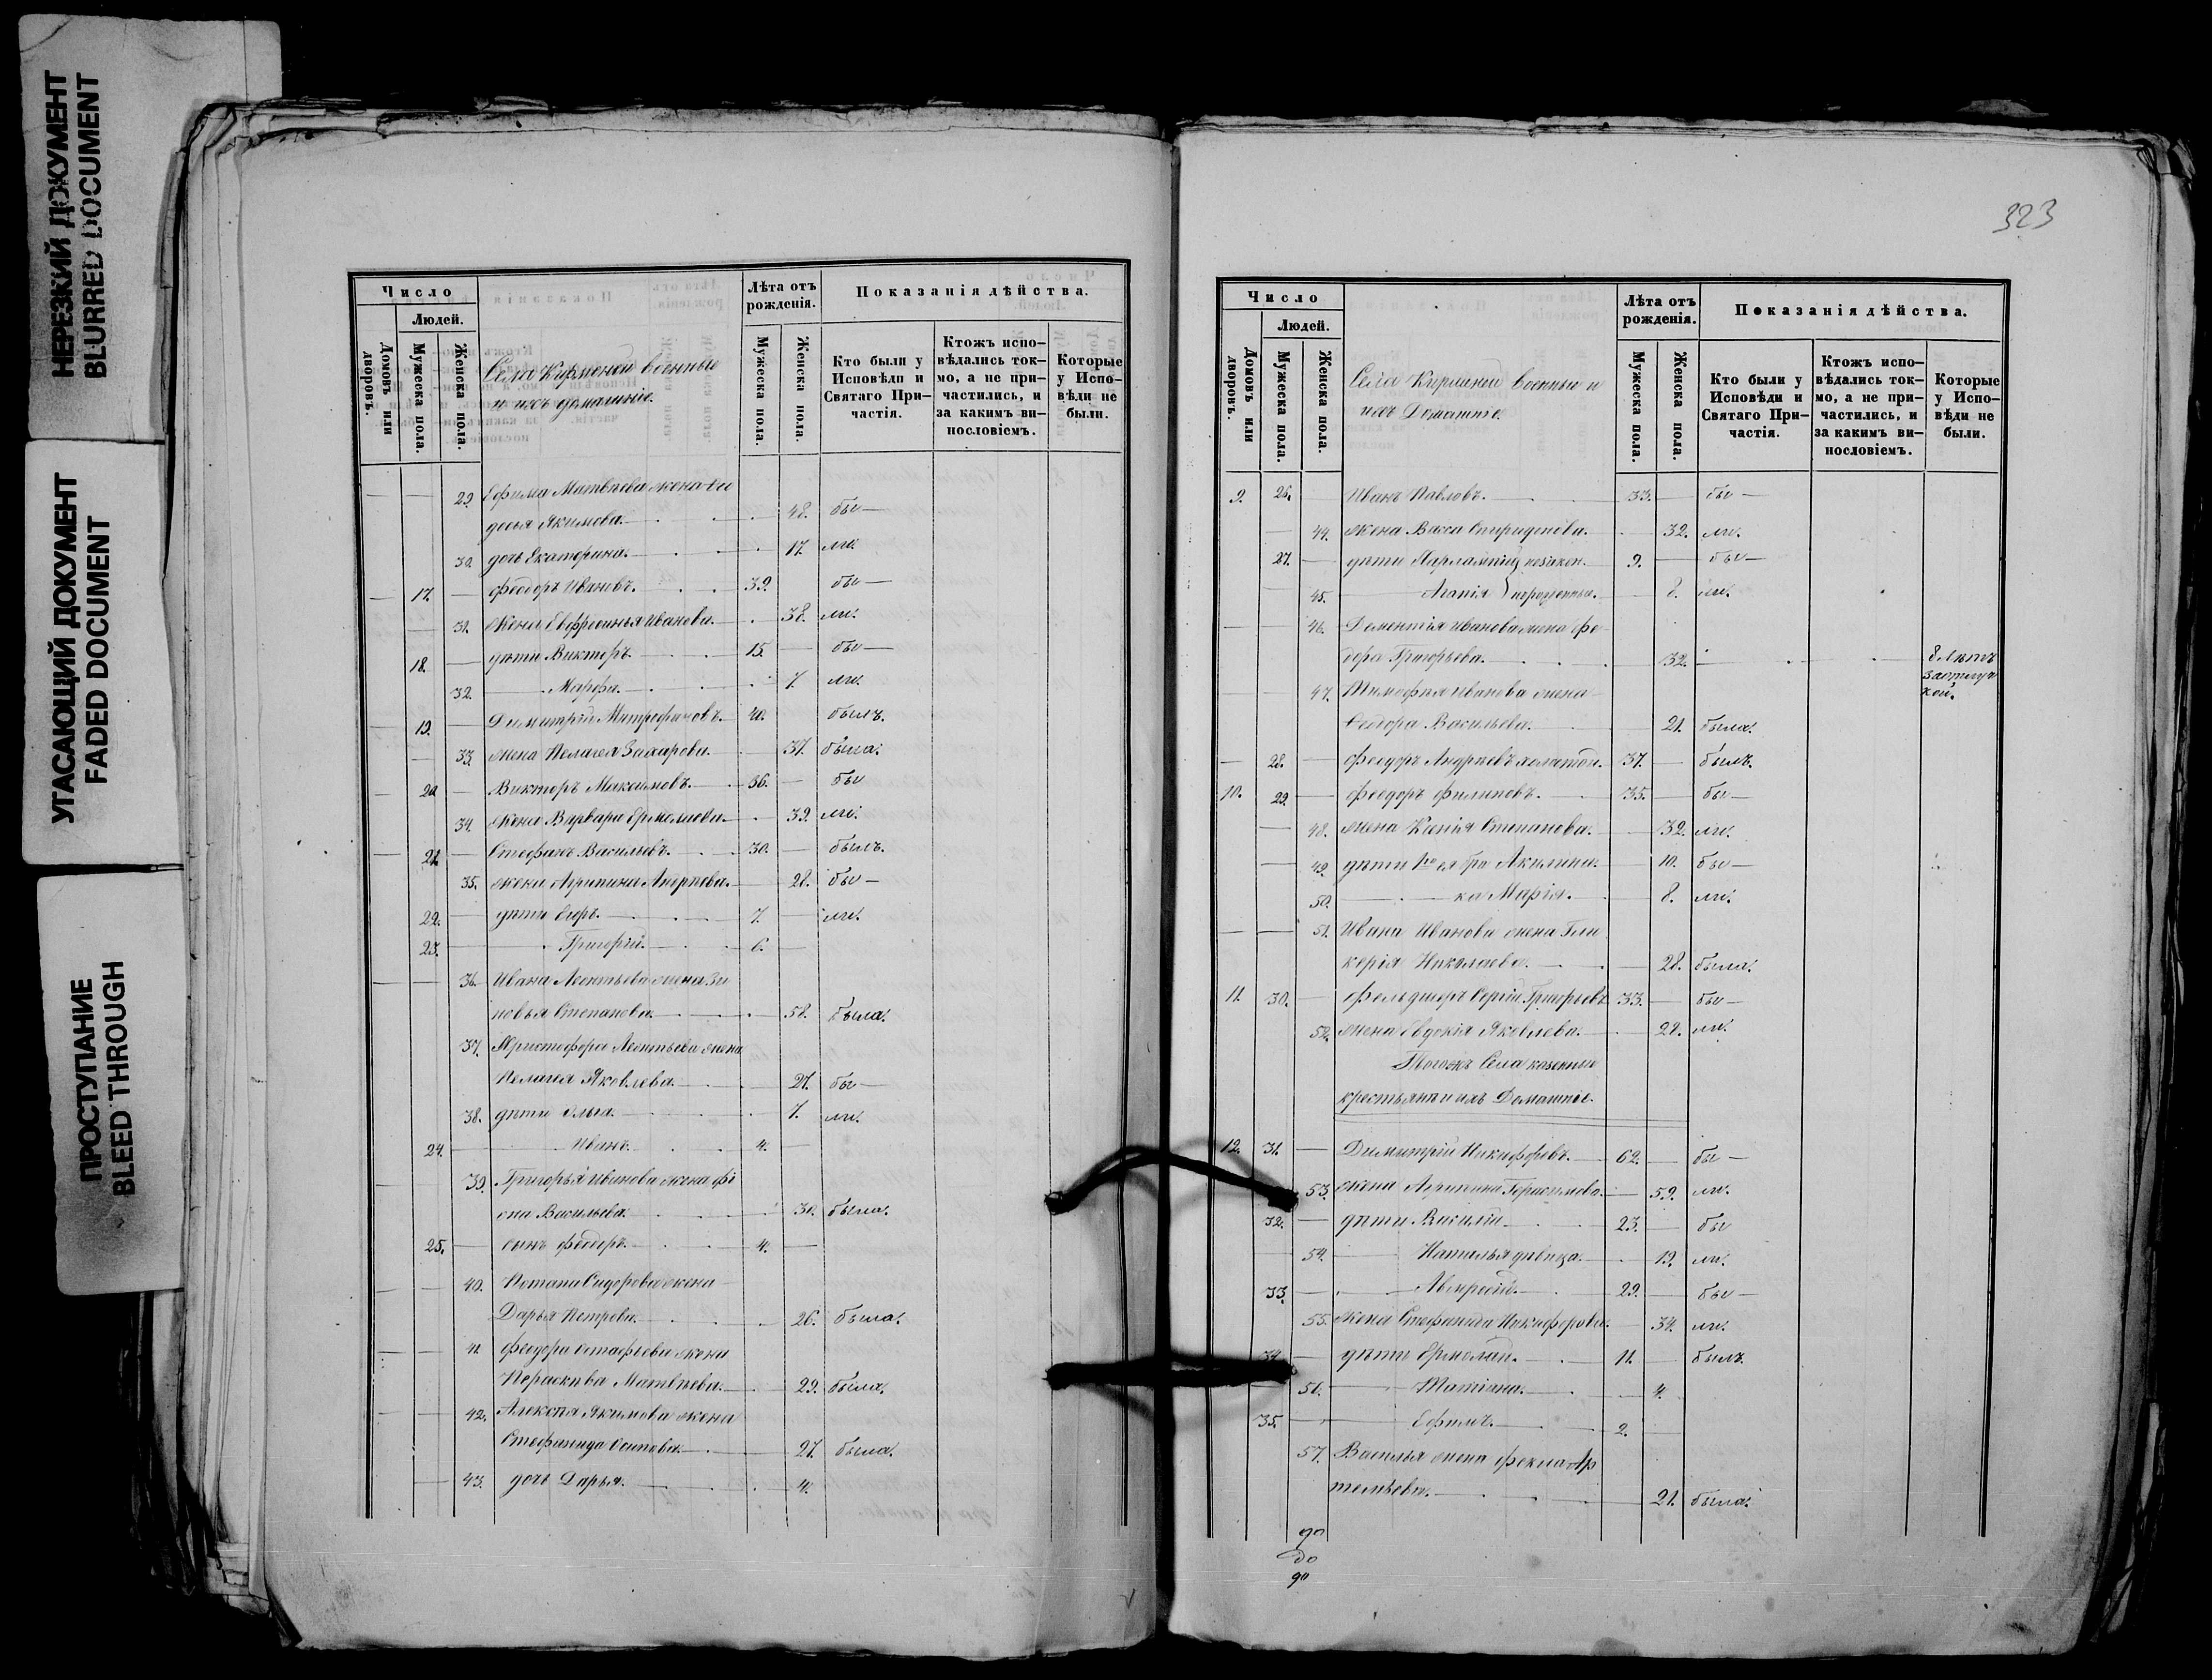 НЕРЕЗКИЙ ДОКУМЕНТ
BLURRED DOCUMENT
УГАСАЮЩИЙ ДОКУМЕНТ
FADED DOCUMENT
ПРОСТУПАНИЕ
BLEED THROUGH
Число
Людей.
Домовъ или дворовъ.
Мужеска пола.
Женска пола.
Села военные
и ихъ домашніе.
Лѣта отъ рожденія.
Мужеска пола.
Женска пола.
Показанія дѣйства.
Кто были у Исповѣди и Святаго Причастія.
Ктожъ исповѣдались токмо, а не причастились, и за какимъ винословіемъ.
Которые у Исповѣди не были.
29. Ефима Матвѣева жена Ѳео
досья Якимова. 48. бы
30. дочь Екатерина. 17. ли.
17. Феодоръ Ивановъ. 39. бы
31. жена Евфросинья Иванова. 38. ли.
18. дѣти Викторъ. 15. бы
32. Марфа. 7. ли.
19. Димитрій Митрофановъ. 40. былъ.
33. жена Пелагея Захарова. 37. была.
20. Викторъ Максимовъ. 36. бы
34. жена Варвара Ермолаева. 39. ли.
21. Стефанъ Васильевъ. 30. былъ.
35. жена Агрипина Андреева. 28. бы
22. дѣти Егоръ. 7. ли.
23. Григорій. 6.
36. Ивана Леонтьева жена Зи
новья Степанова. 58. была.
37. Христофора Леонтьева жена
Пелагея Яковлева. 27. бы
38. дѣти Ольга. 7. ли.
24. Иванъ. 4.
39. Григорья Иванова жена Фі
она Васильева. 30. была.
25. сынъ Феодоръ. 4.
40. Потапа Сидорова жена
Дарья Петрова. 26. была.
41. Феодора Остафьева жена
Параскива Матвѣева. 29. была.
42. Алексѣя Якимова жена
Стефанида Осипова. 27. была.
43. дочь Дарья. 4.
323
Число
Людей.
Домовъ или дворовъ.
Мужеска пола.
Женска пола.
Села военные и
ихъ Домашніе.
Лѣта отъ рожденія.
Мужеска пола.
Женска пола.
Показанія дѣйства.
Кто были у Исповѣди и Святаго Причастія.
Ктожъ исповѣдались токмо, а не причастились, и за какимъ винословіемъ.
Которые у Исповѣди не были.
9. 26. Иванъ Павловъ. 33. бы
44. жена Васса Спиридонова. 32. ли.
27. дѣти Харлампій незакон. 9. бы
45. Агапія 8. ли.
46. Дементія Иванова жена Фе
дора Григорьева. 32. 8 лѣтъ
47. Тимофея Иванова жена
Федора Васильева. 21. была.
28. Феодоръ Андреевъ холатой. 37. былъ.
10. 29. Феодоръ Филиповъ. 35. бы
48. жена Ксенія Степанова. 32. ли.
49. дѣти Акилина. 10. бы
50. Марія. 8. ли.
51. Ивана Иванова жена Гли
керія Николаева. 28. была.
11. 30. Фельдшеръ Сергій Григорьевъ 33. бы
52. жена Евдокія Яковлева. 22. ли.
Тогожъ Села казенные
крестьяне и ихъ Домашніе.
12. 31. Димитрій Никифоровъ. 62. бы
53. жена Агрипина Герасимова. 59. ли.
32. дѣти Василій. 23. бы
54. Наталья дѣвица. 19. ли.
33. 29. бы
55. жена Стефанида Никифорова. 34. ли.
34. дѣти Ермолай. 11. былъ.
56. Татіана. 4.
35. Ефимъ. 2.
57. Василья жена Фекла Ар
темьева. 21. была.